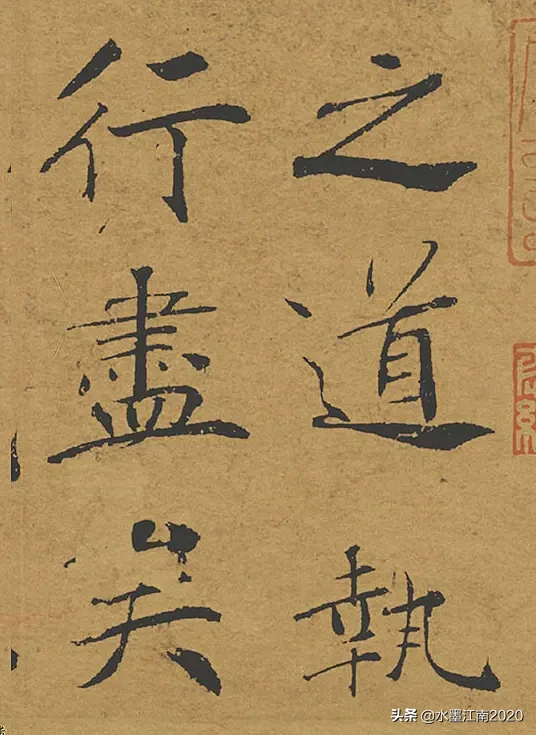 之道執
行盡矣
头条 @水墨江南2020